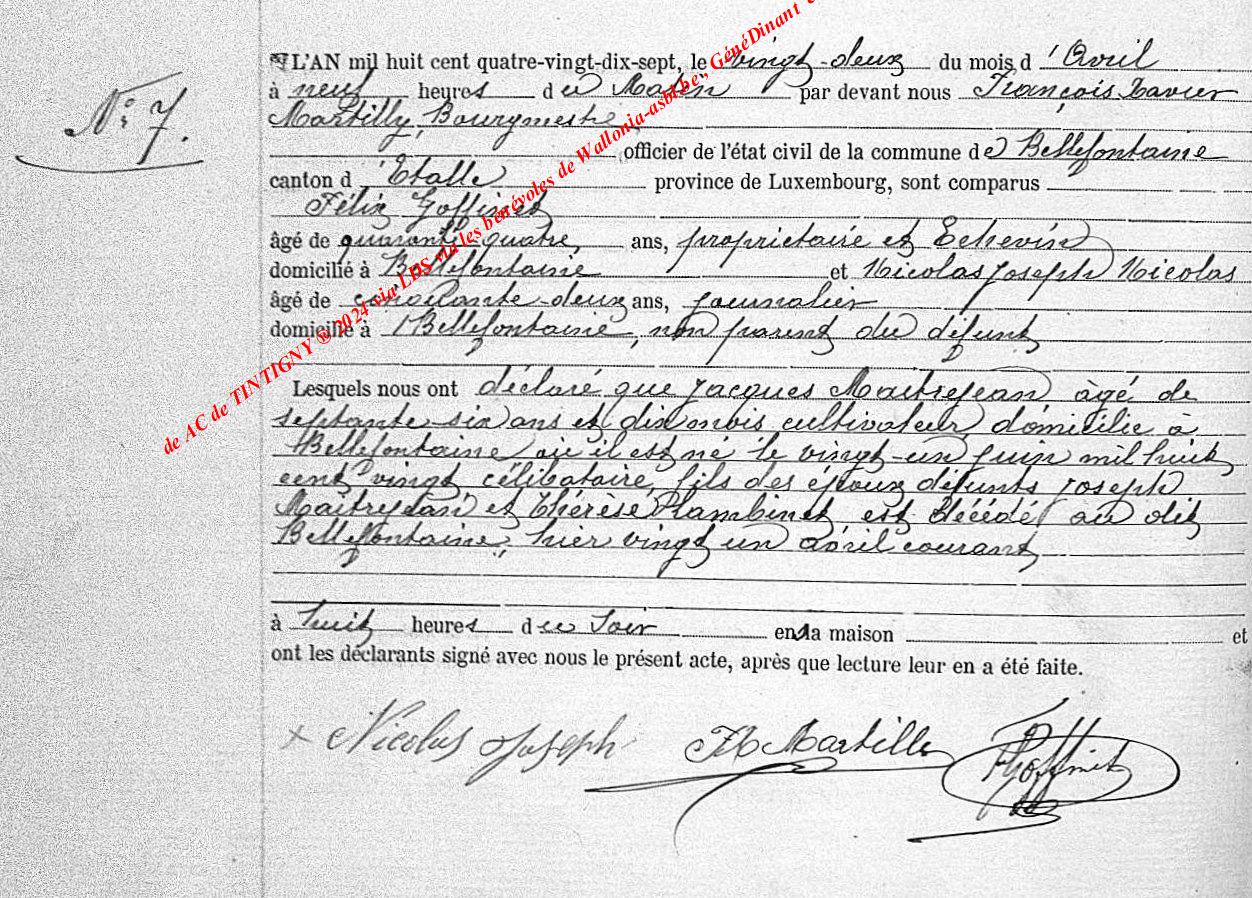 N° 7.
L'AN mil huit cent quatre-vingt-dix-sept, le vingt-deux du mois d'Avril
à neuf heures du Matin par devant nous François Xavier
Martilly, Bourgmestre
officier de l'état civil de la commune de Bellefontaine
canton d'Etalle province de Luxembourg, sont comparus
Félix Goffinet
âgé de quarante-quatre ans, propriétaire et Echevin
domicilié à Bellefontaine et Nicolas Joseph Nicolas
âgé de cinquante-deux ans, journalier
domicilié à Bellefontaine, non parent du défunt
Lesquels nous ont déclaré que Jacques Maitrejean âgé de
septante six ans et dix mois cultivateur domicilié à
Bellefontaine où il est né le vingt-un juin mil huit
cent vingt célibataire, fils des époux défunts Joseph
Maitrejean et Thérèse Plambinet est décédé au dit
Bellefontaine, hier vingt un avril courant
à huit heures du soir en sa maison et
ont les déclarants signé avec nous le présent acte, après que lecture leur en a été faite.
x Nicolas Joseph FX Martilly F Goffinet
de AC de TINTIGNY ® 2024 via LDS via les bénévoles de Wallonia-asbl.be, GénéDinant